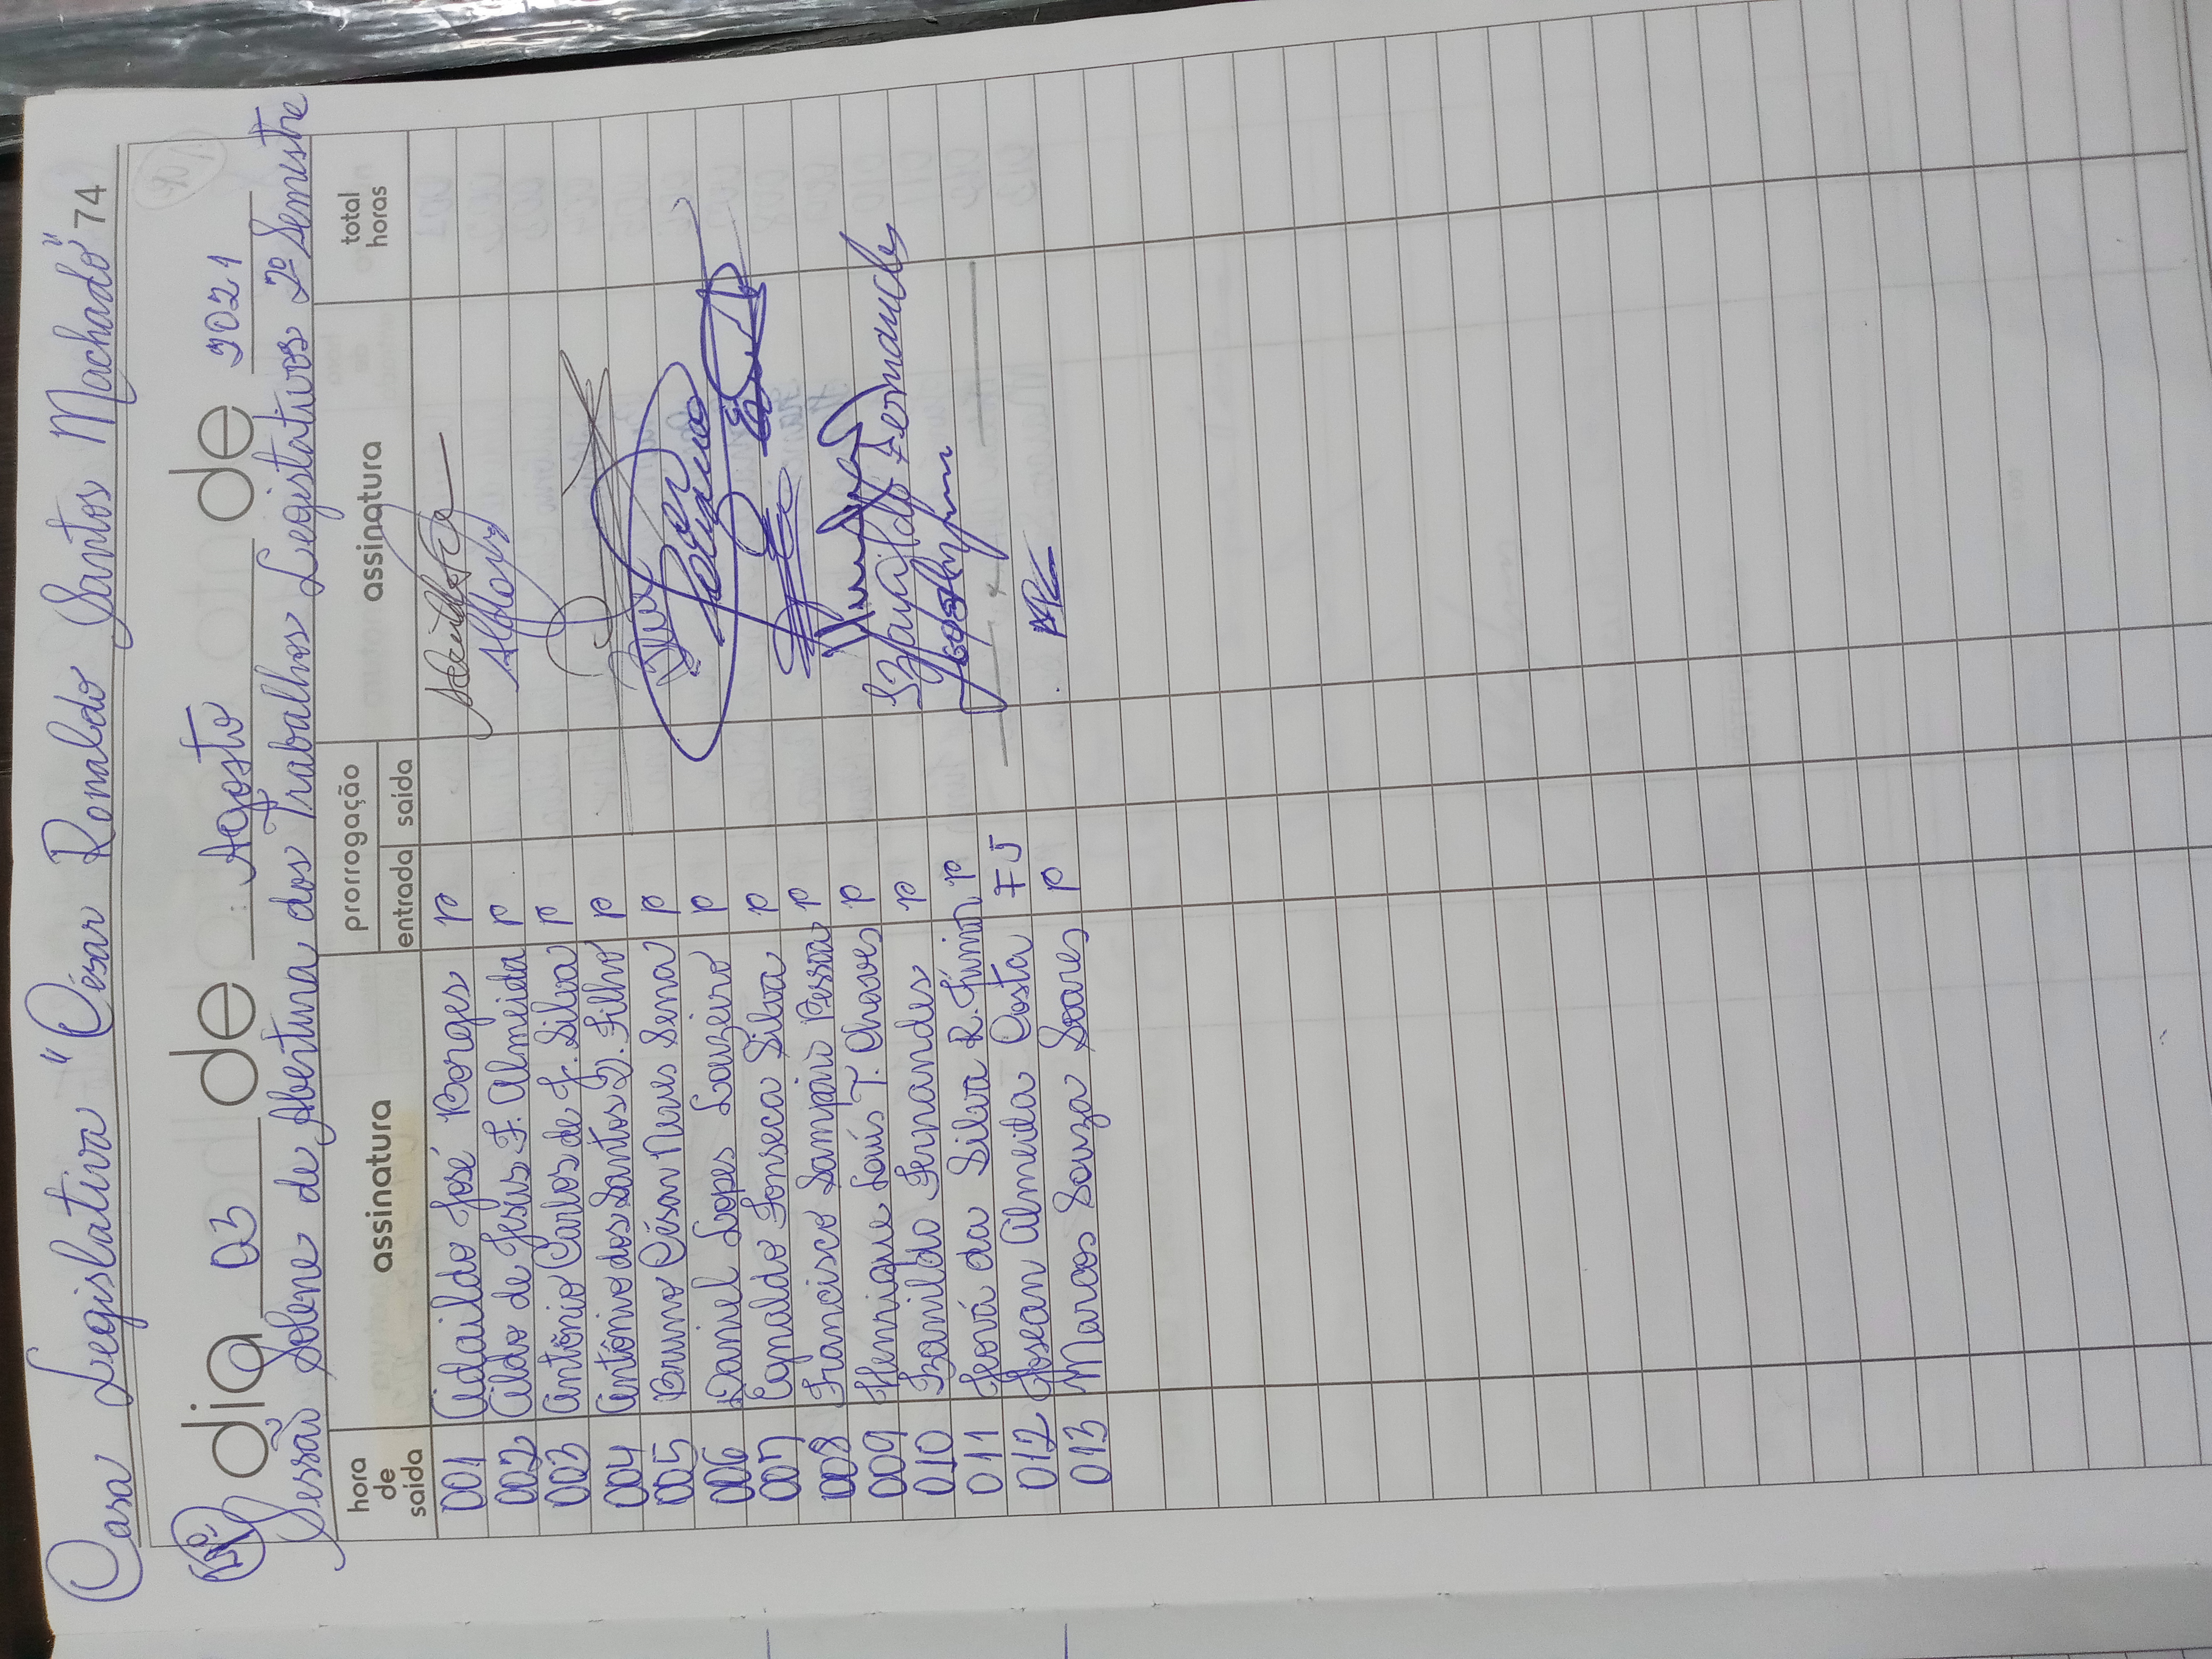 Casa Legislativa "César Ronaldo Santos Machado" 74
dia 03 de Agosto de 2021
Sessão Solene de Abertura dos Trabalhos Legislativos 2º Semestre
hora de saída assinatura prorrogação entrada saída assinatura total horas
001 Adaildo José Borges P
002 Aildo de Jesus F. Almeida P
003 Antônio Carlos de J. Silva P
004 Antônio dos Santos Q. Filho P
005 Bruno César Neves Sena P
006 Daniel Lopes Louzeiro P
007 Egnaldo Fonseca Silva P
008 Francisco Sampaio Pessoa P
009 Henrique Louis T. Chaves P
010 Izanildo Fernandes P Izanildo Fernandes
011 Jeová da Silva R. Júnior P
012 Josean Almeida Costa FJ
013 Marcos Souza Soares P